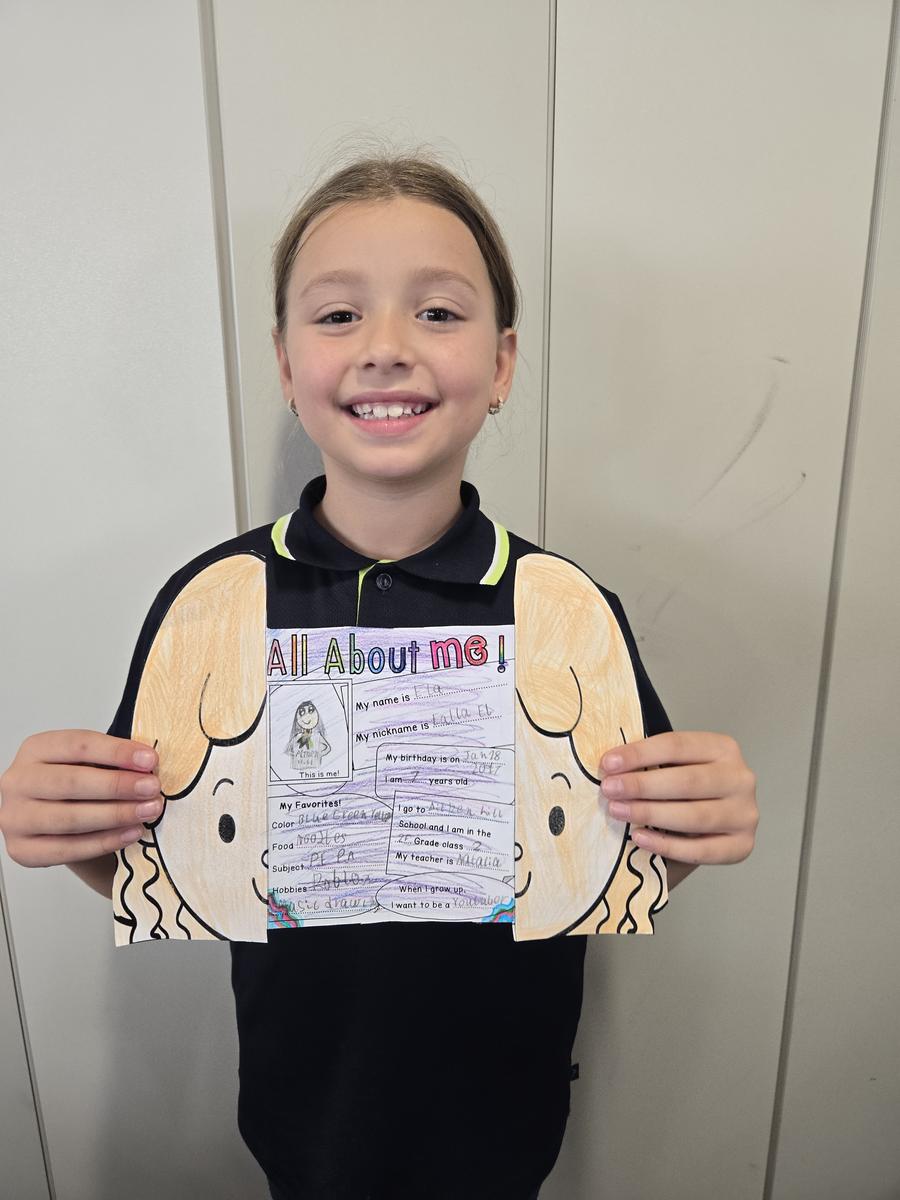 All About me!
My name is Ela
My nickname is Lalla El
This is me!
My birthday is on Jan 18
2017
I am 7 years old
My Favorites!
Color Blue Green
Food Noodles
Subject PE
Hobbies Roblox
Music drawing
I go to
School and I am in the
2F Grade class 2
My teacher is Natalia
When I grow up,
I want to be a Youtuber